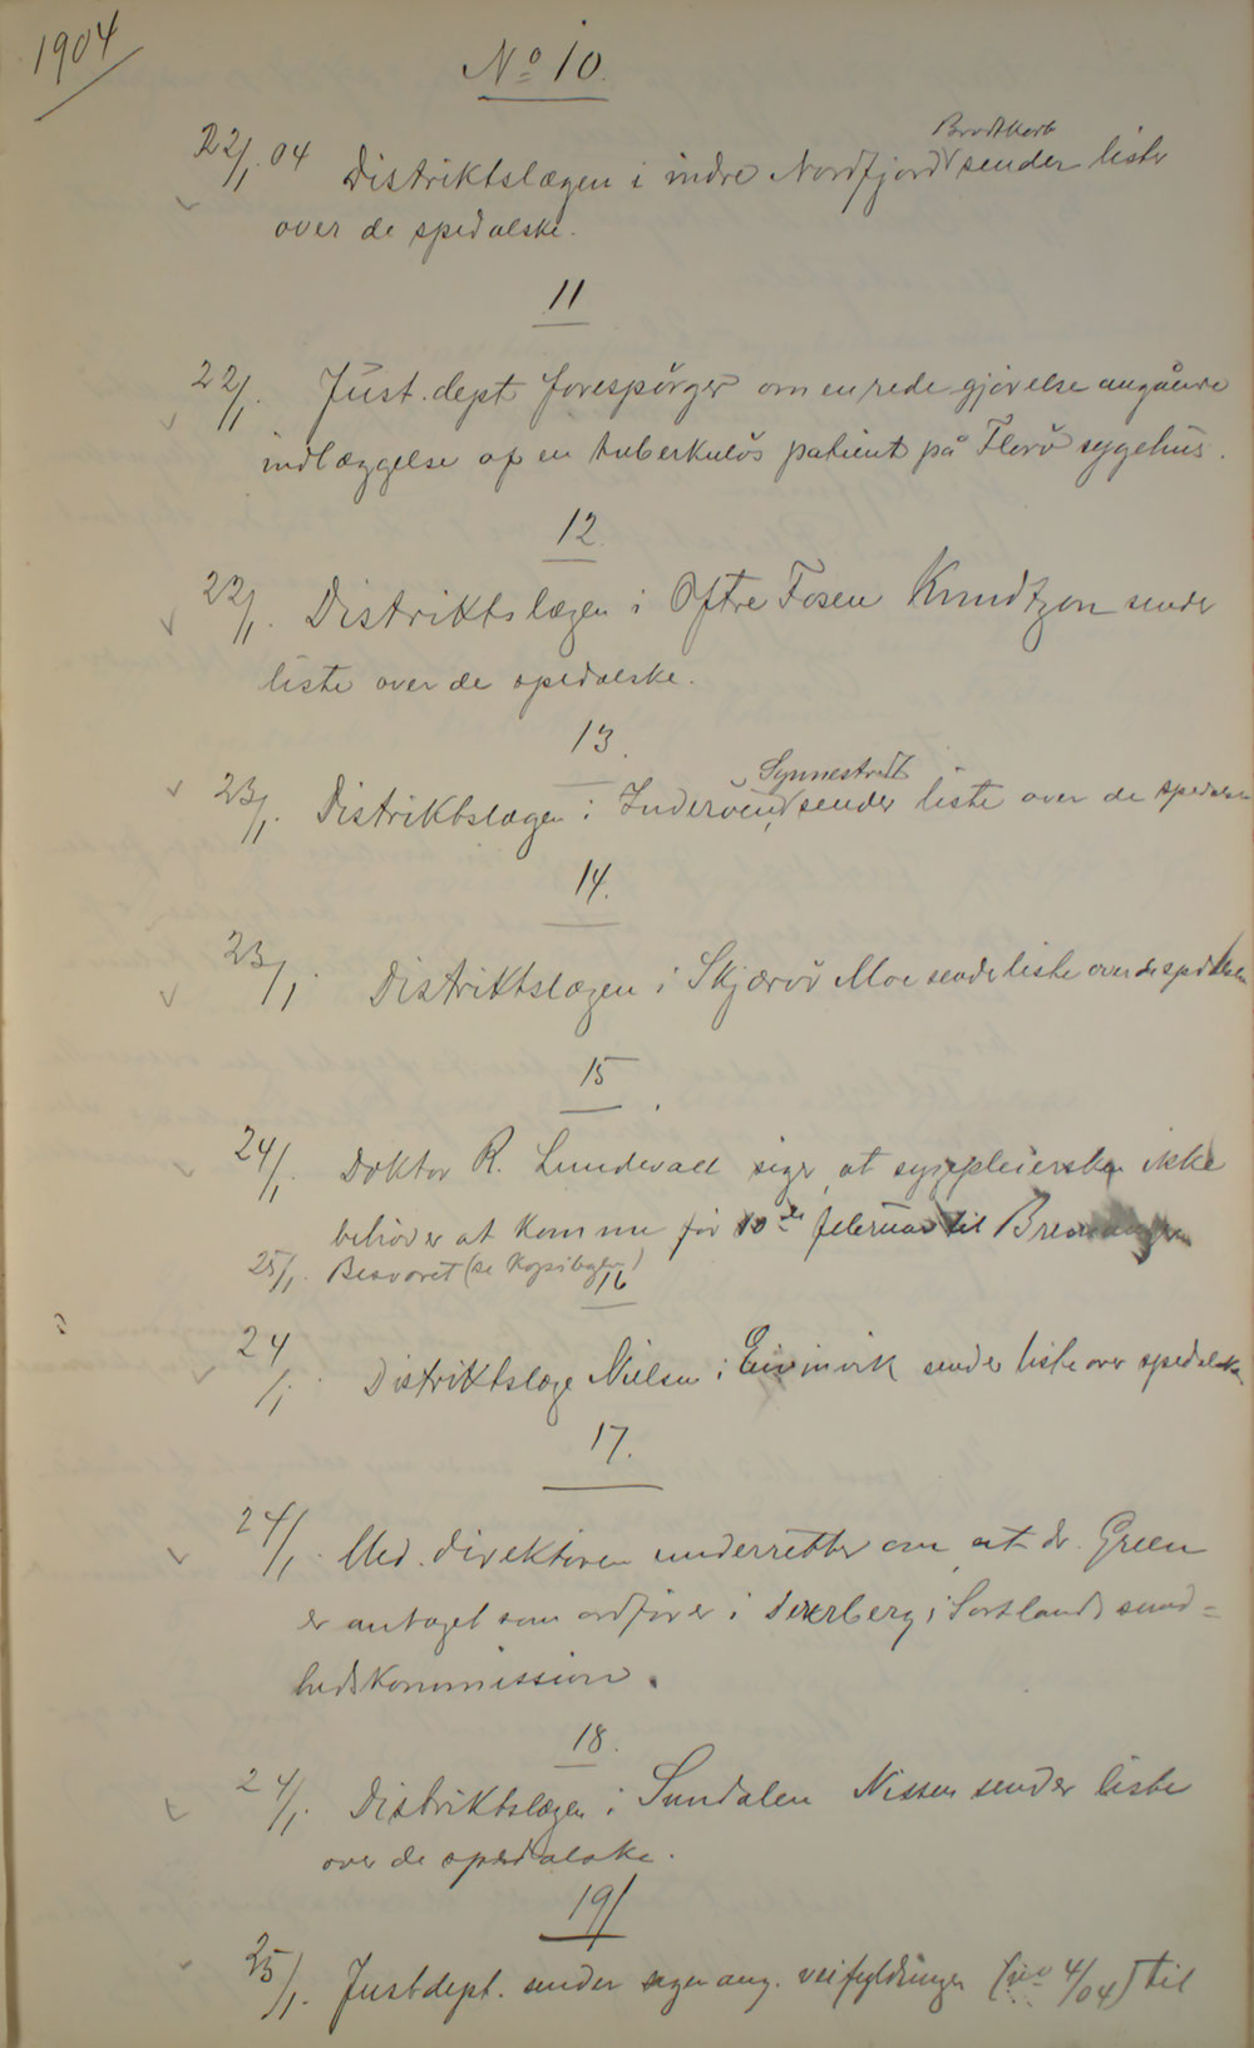 1904
No 10.
22/1 04 Distriktslægen i indre Nordfjord Brodtkorb sender liste
over de spedalske.
11
22/1. Just. dept forespörger om en redegjörelse angående
indlæggelse af en tuberkulös patient på Florö sygehus.
12.
22/1. Distriktslægen i Östre Fosen Knudtzon sender
liste over de spedalske.
13.
23/1. Distriktslægen i Inderöen, Synnestvedt sender liste over de
14.
23/1 Distriktslægen i Skjærvö Moe sender liste over de spedalske
15
24/1. Doktor R. Lundevall siger, at sygepleiersken ikke
behöver at komme för 10de februar til Bremanger
25/1. Besvaret (se Kopibogen)
16
24/1. Distriktslæge Nielsen i Eivinvik sender liste over spedalske
17.
24/1. Med. direktören underretter om at dr. Green
er antaget som ordförer i i Sortlands sund=
hedskommission.
18.
24/1. Distriktslægen i Sundalen Nissen sender liste
over de spedalske.
19/
25/1. Justdept. sender sagen ang. veifyldinger (no 4/04) til